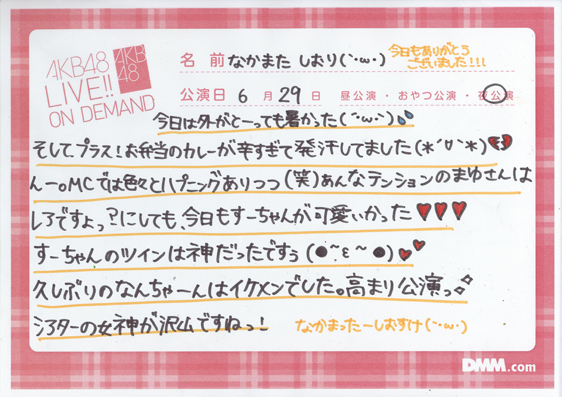 AKB48
LIVE!!
ON DEMAND
AKB
48
名 前 なかまた しおり(´・ω・)
今日もありがとう
ございました!!!
公演日 6 月 29 日 昼公演・おやつ公演・夜公演
今日は外がとーっても暑かった(´・ω・)
そしてプラス!お弁当のカレーが辛すぎて発汗してました(*´▽`*)
んー。MCでは色々とハプニングありつつ(笑)あんなテンションのまゆさんは
しろですよっ?にしても、今日もすーちゃんが可愛いかった♥♥♥
すーちゃんのツインは神だったですぅ(●~ε~●)♥♥
久しぶりのなんちゃーんはイケメンでした。高まり公演っ
シアターの女神が沢山ですねっ!
なかまったーしおすけ(´・ω・)
DMM.com